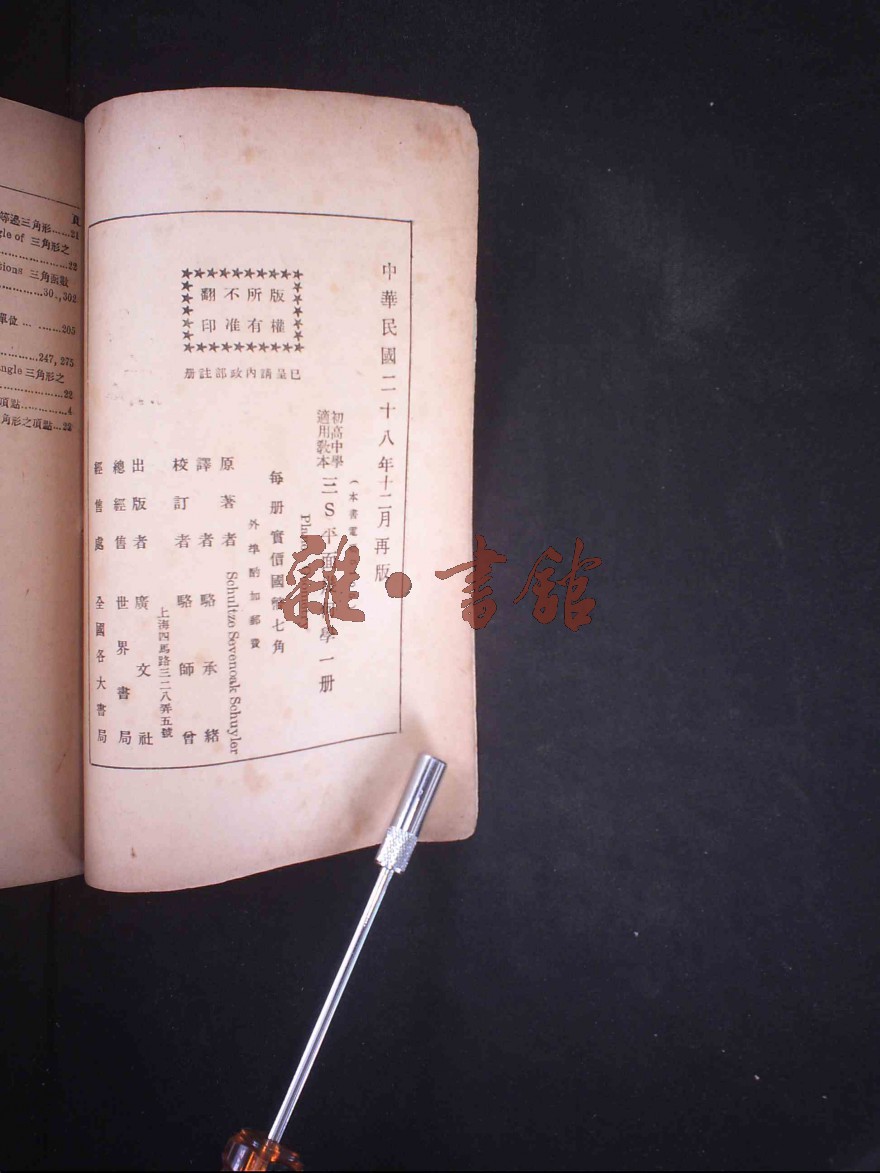 頁
等邊三角形……21
gle of 三角形之
……22
tions 三角函數
……30., 302
單位………205
……247, 275
ngle 三角形之
……22
頂點……4
角形之頂點…23
中華民國二十八年十二月再版
版權
所有
不准
翻印
已呈請內政部註册
(本書電
初高中學
適用教本
三S平面
學一册
每册實價國幣七角
外準酌加郵費
原著者 Schultze Sevenoak Schuyler
譯者 駱承緒
校訂者 駱師曾
上海四馬路三二八弄五號
出版者 廣文社
總經售 世界書局
經售處 全國各大書局
雜·書館